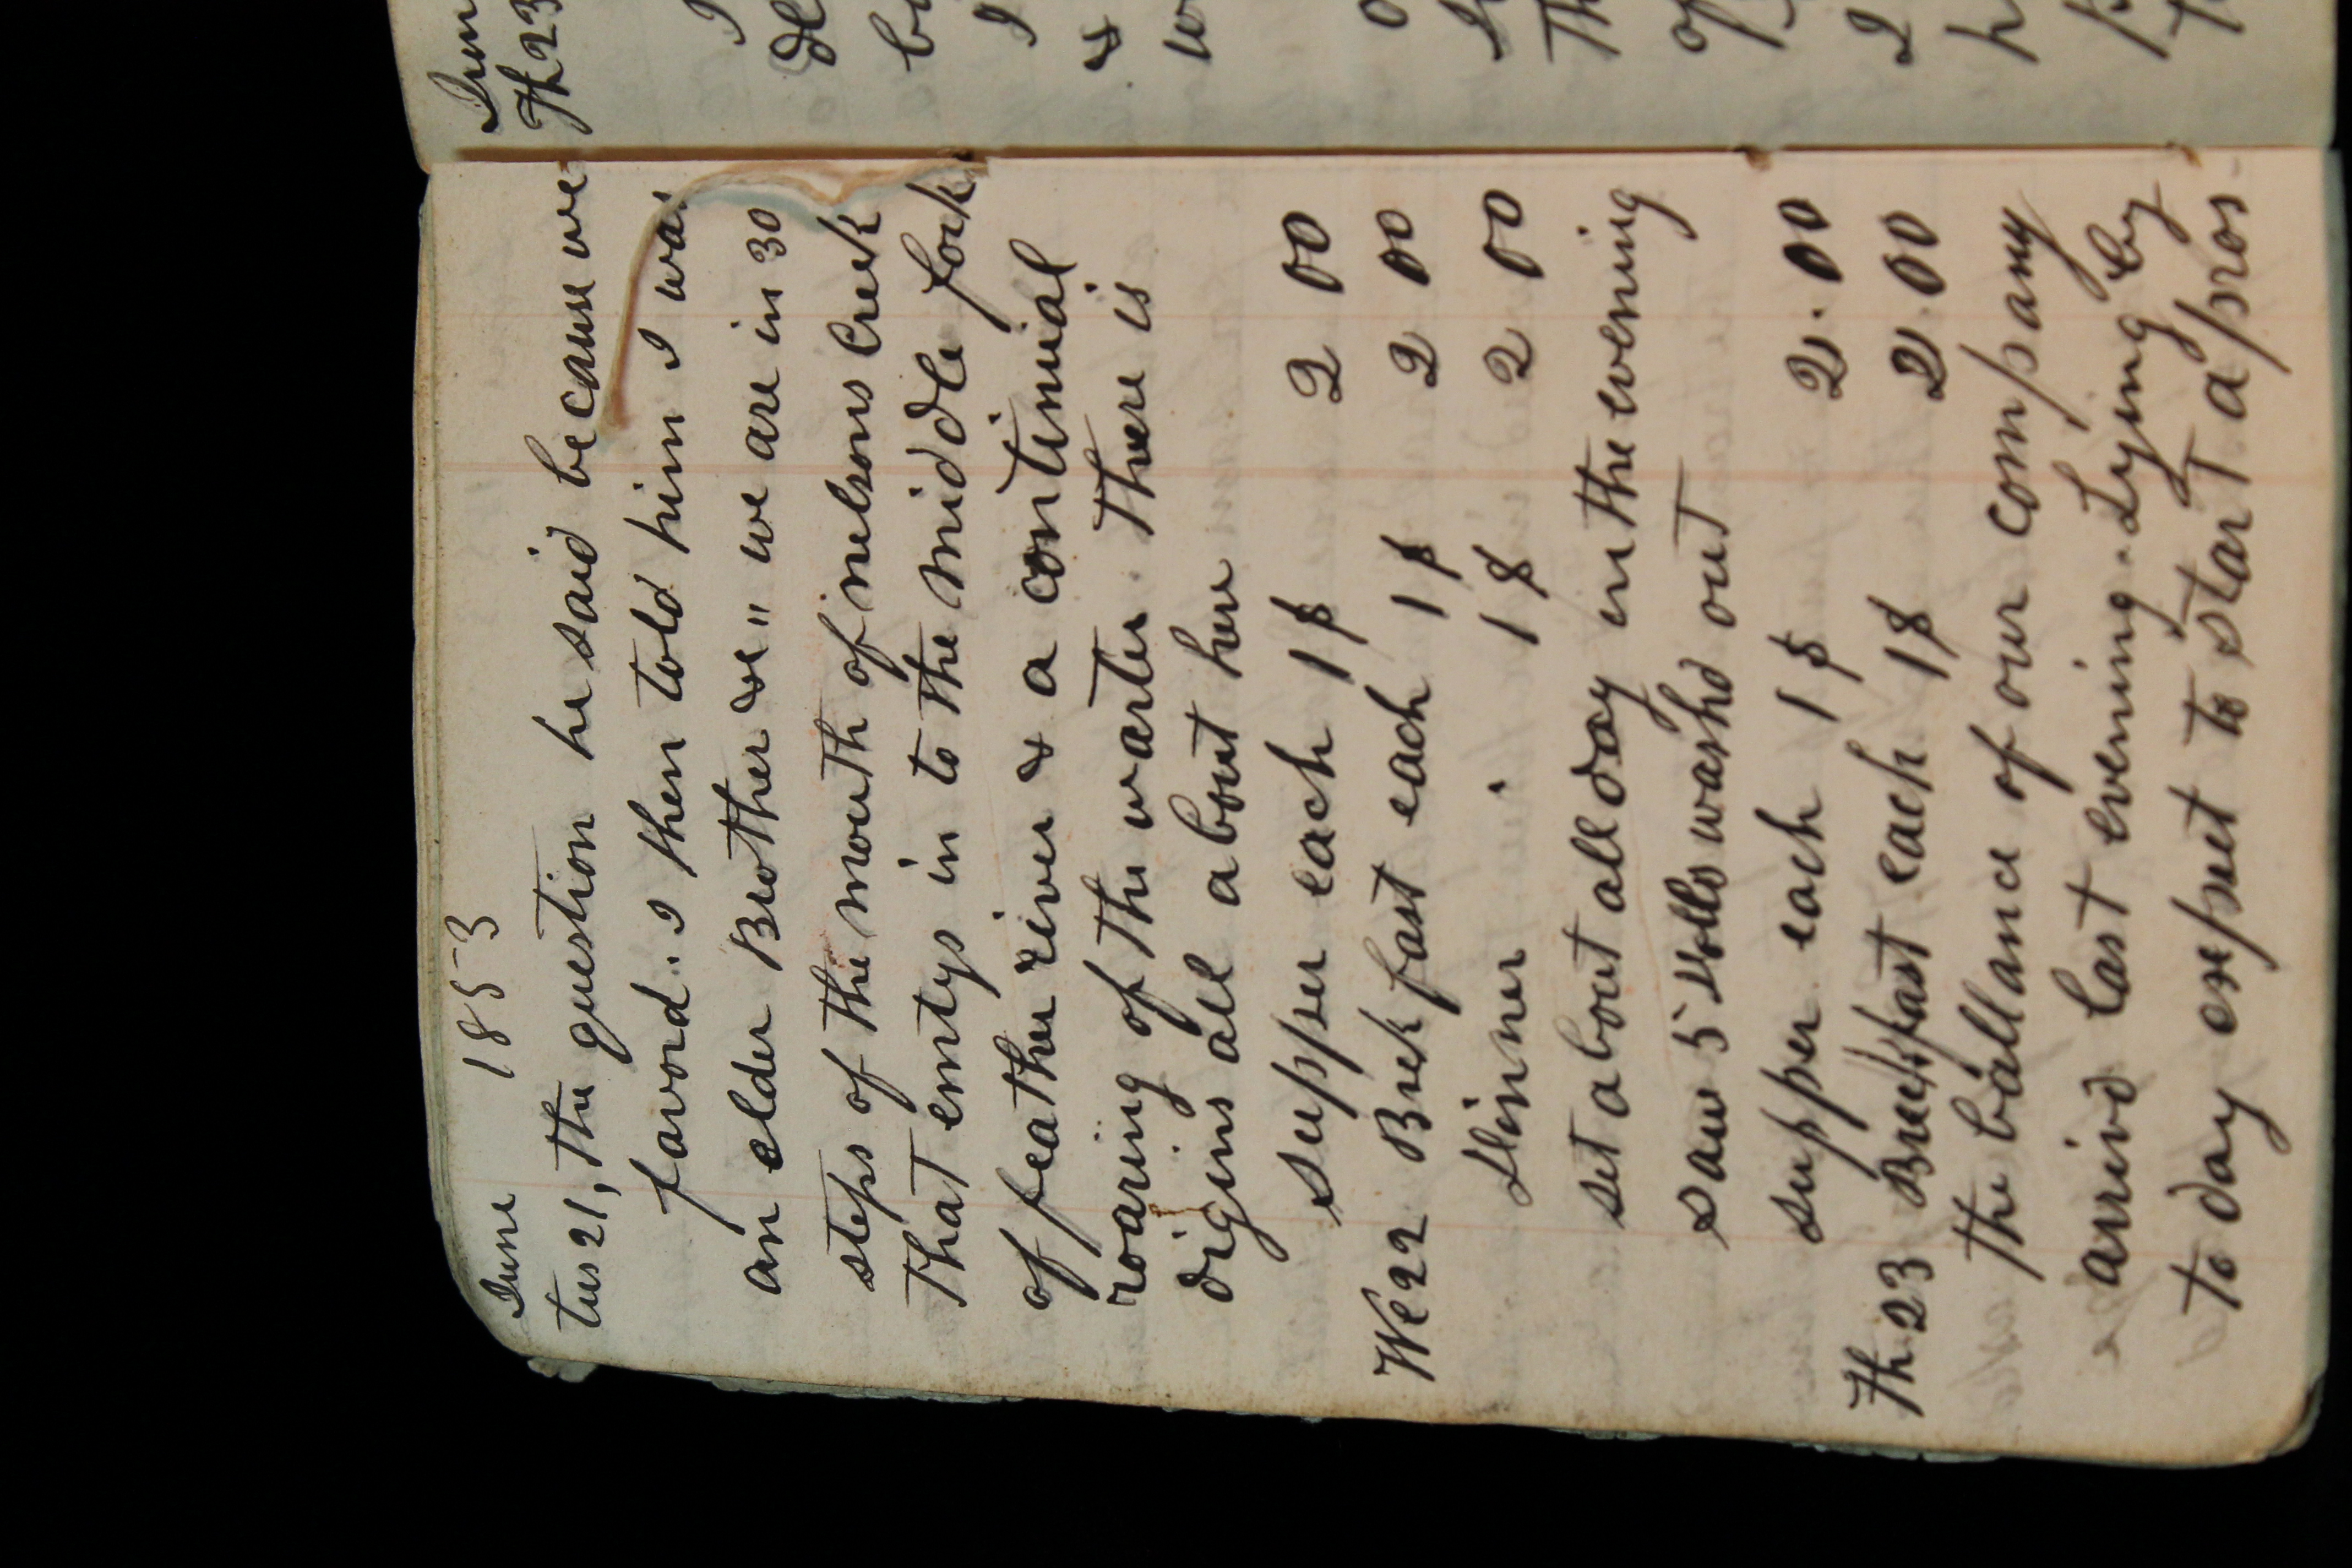 June 1853
tus 21, the question he said because we
favord. I then told him I was
an elder Brother &c " we are in 30
steps of the mouth of nelsons Creek
that emtys in to the middle fork
of feather river & a continual
roaring of the warter. There is
digins all about here
supper each 1$ 2 00
We 22 Brekfast each 1$ 2 00
Dinner " 1$ 2 00
set about all day in the evening
saw 5 Dolls washd out
supper each 1$ 2.00
Th 23 Breckfast each 1$ 2.00
the ballance of our company
arrivd last evening. Lying by
to day expect to start a pros
Th 23